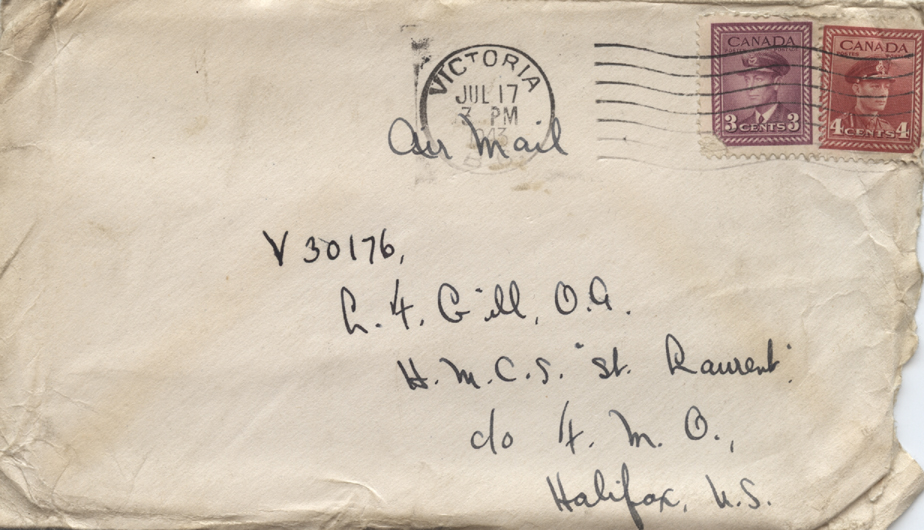 VICTORIA
JUL 17
PM
CANADA
3 CENTS 3
CANADA
4 CENTS 4
Air Mail
V 30176,
L. F. Gill, O.A.
H.M.C.S. "St. Laurent"
c/o F. M. O.,
Halifax, N.S.